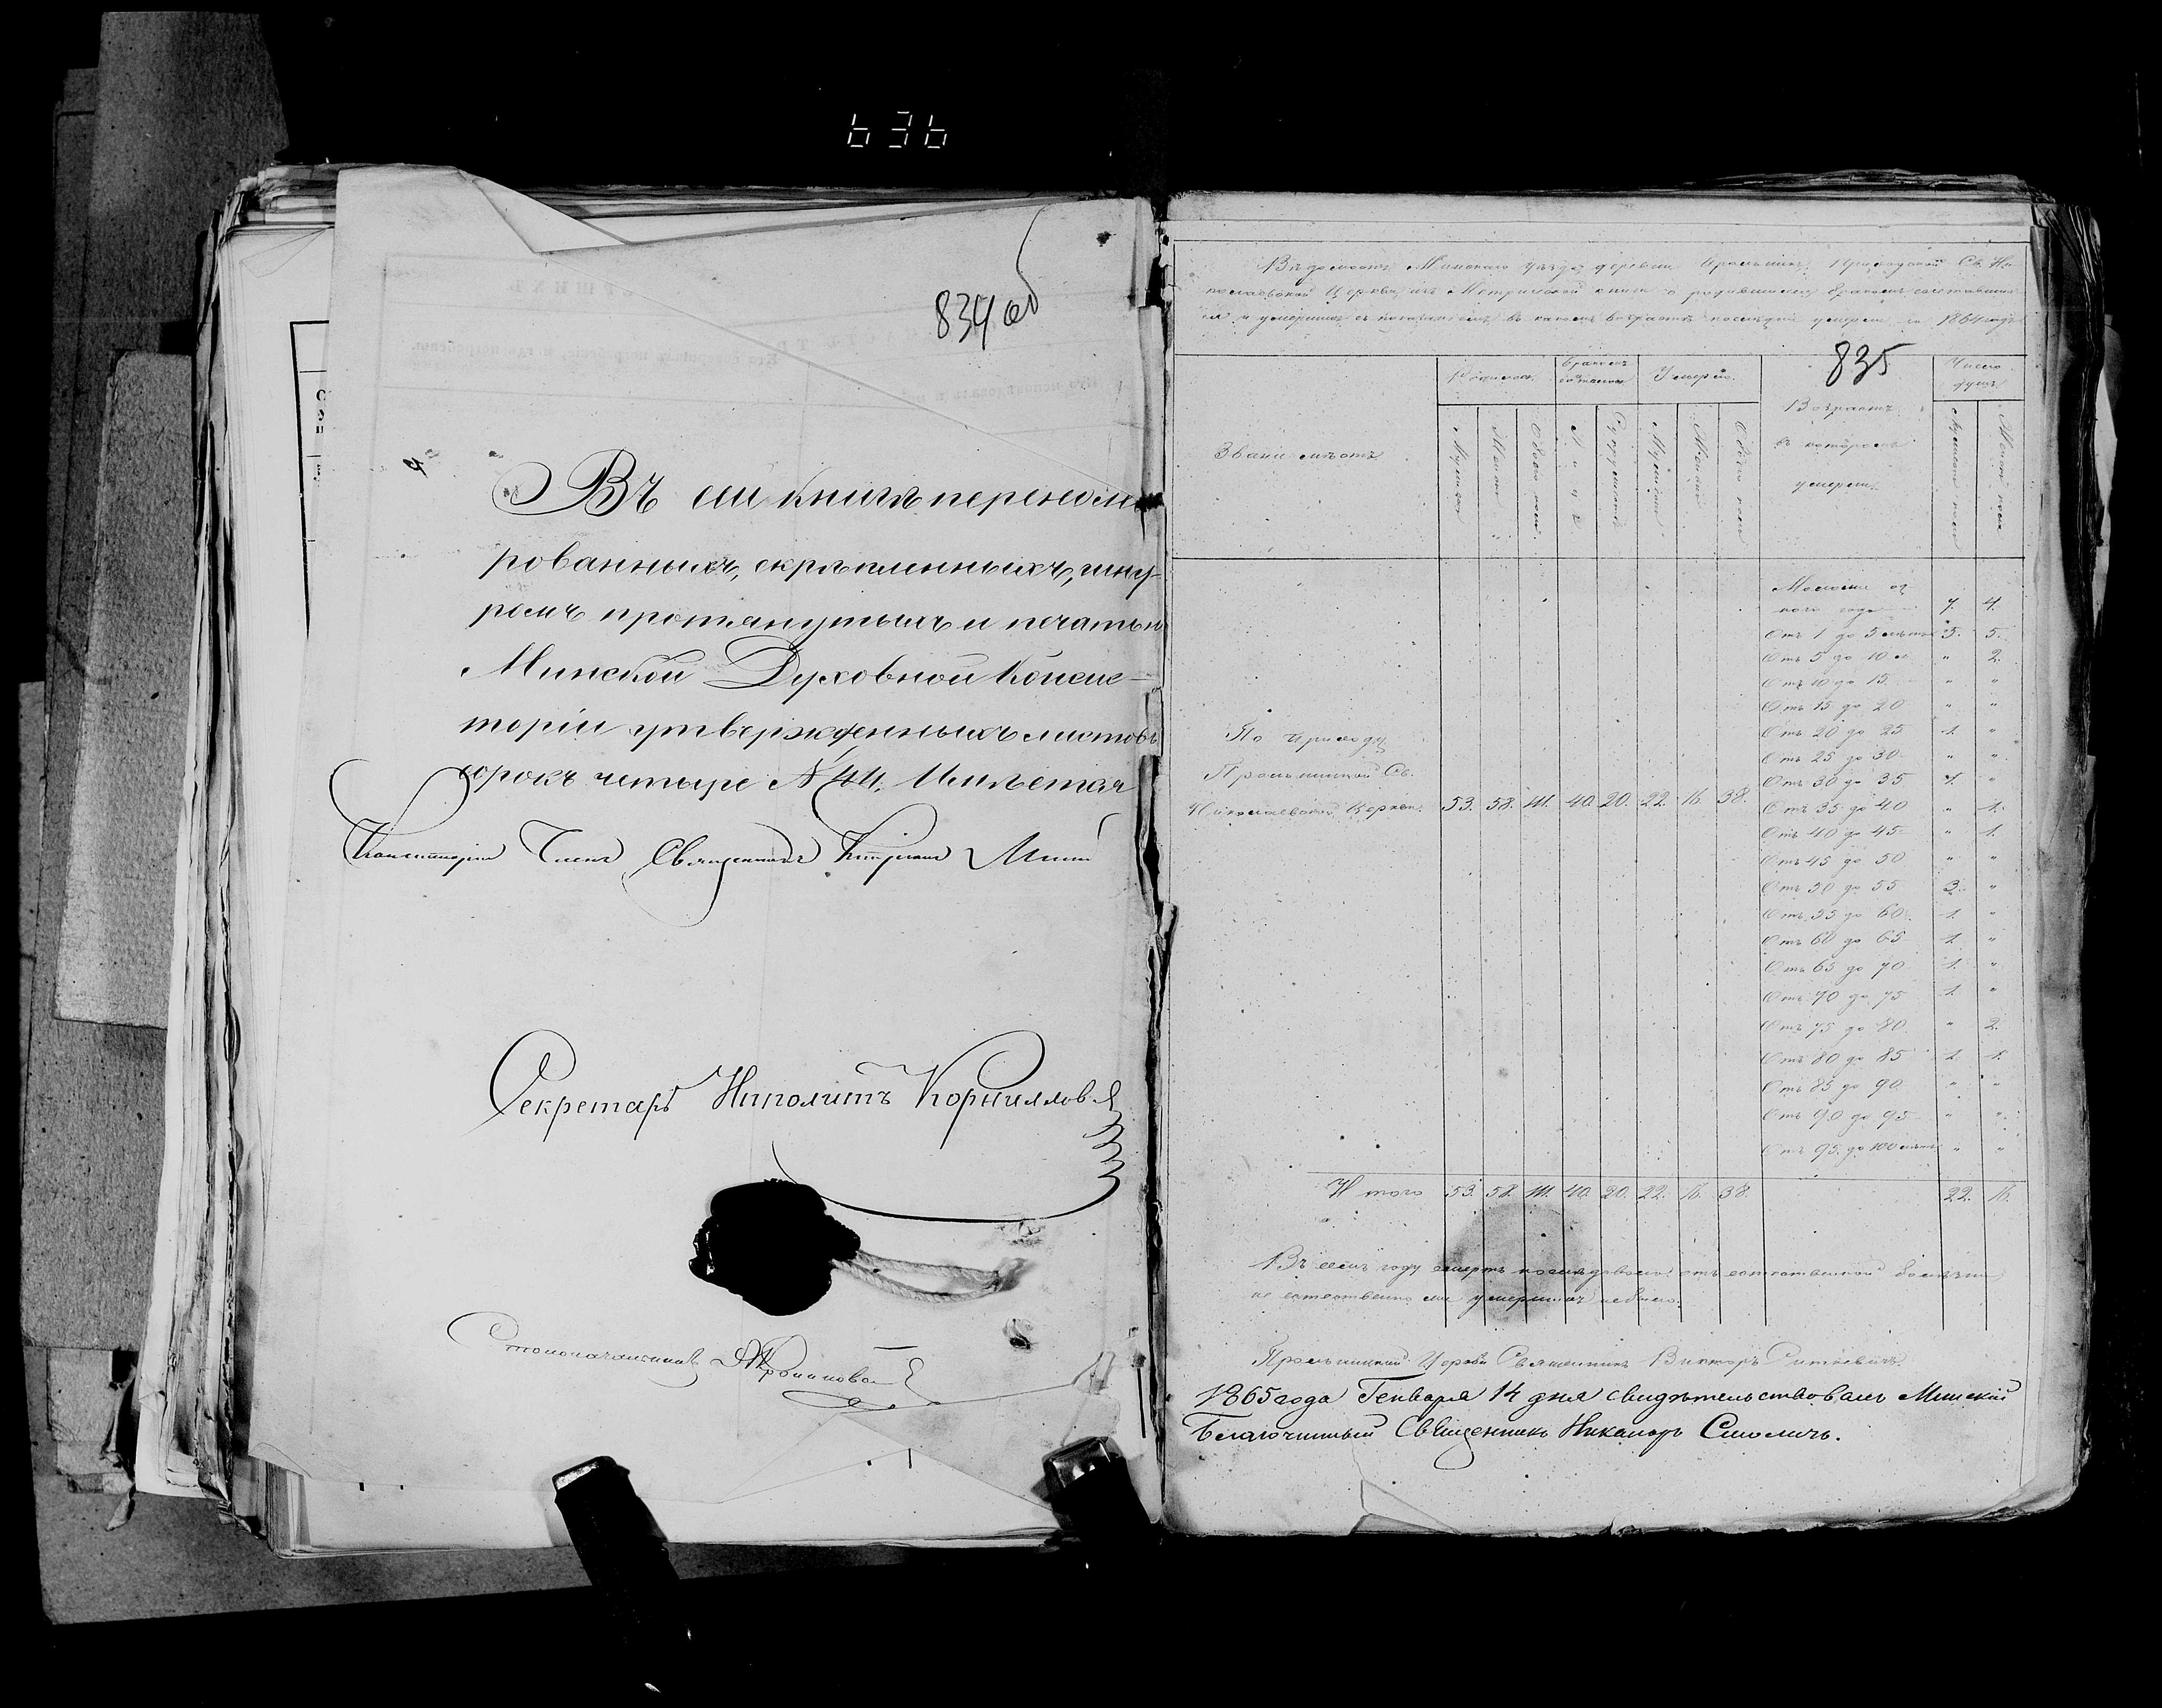 636
834 об
Въ сей книгѣ переномѣ-
рованныхъ, скрѣпленныхъ, шну-
ромъ протянутыхъ и печатью
Минской Духовной Консис-
торіи утвержденныхъ листовъ
сорокъ четыре № 44.
Консисторіи Членъ Священникъ
Секретарь Иполитъ Корниллов
Столоначальникъ
Вѣдомость Минскаго уѣзда деревни Приходской Св. Ни-
колаевской Церкви изъ Метрической книги о родившихся бракомъ сочетавших-
ся и умершихъ съ показаніемъ въ какомъ возрастѣ послѣдніе умерли за 1864 годъ
835
Званіе мѣстъ
Родилось.
Бракомъ сочталось
Умерло.
Возрастъ
въ которомъ
умерли.
Число душъ
Мужеска
Женска
Обоего пола.
Лицъ
Супружествъ
Мужеска
Женска
Обоего пола
Мужеска пола
Женска пола
Моложе од
ного года 7. 4.
Отъ 1 до 5 лѣтъ 5. 5.
Отъ 5 до 10 л " 2.
Отъ 10 до 15. " "
Отъ 15 до 20 " "
Отъ 20 до 25 1. "
Отъ 25 до 30 " "
Отъ 30 до 35 1. "
Отъ 35 до 40 " 1.
Отъ 40 до 45 " 1.
Отъ 45 до 50 " "
Отъ 50 до 55 3. "
Отъ 55 до 60. 1. "
Отъ 60 до 65 1. "
Отъ 65 до 70 1. "
Отъ 70 до 75 1. "
Отъ 75 до 80. " 2.
Отъ 80 до 85 1. 1.
Отъ 85 до 90 " "
Отъ 90 до 95 " "
Отъ 95 до 100 лѣтъ " "
По приходу
Св.
Николаевской Церкви. 53. 58. 111. 40. 20. 22. 16. 38.
Итого 53. 58. 111. 40. 20. 22. 16. 38. 22. 16.
Въ семъ году смерть послѣдовала отъ естественной болѣзни
не естественно умершихъ небыло.
Церкви Священникъ Викторъ
1865 года Генваря 14 дня свидѣтельствовалъ Минскій
Благочинный Священникъ Никаноръ Смоличъ.